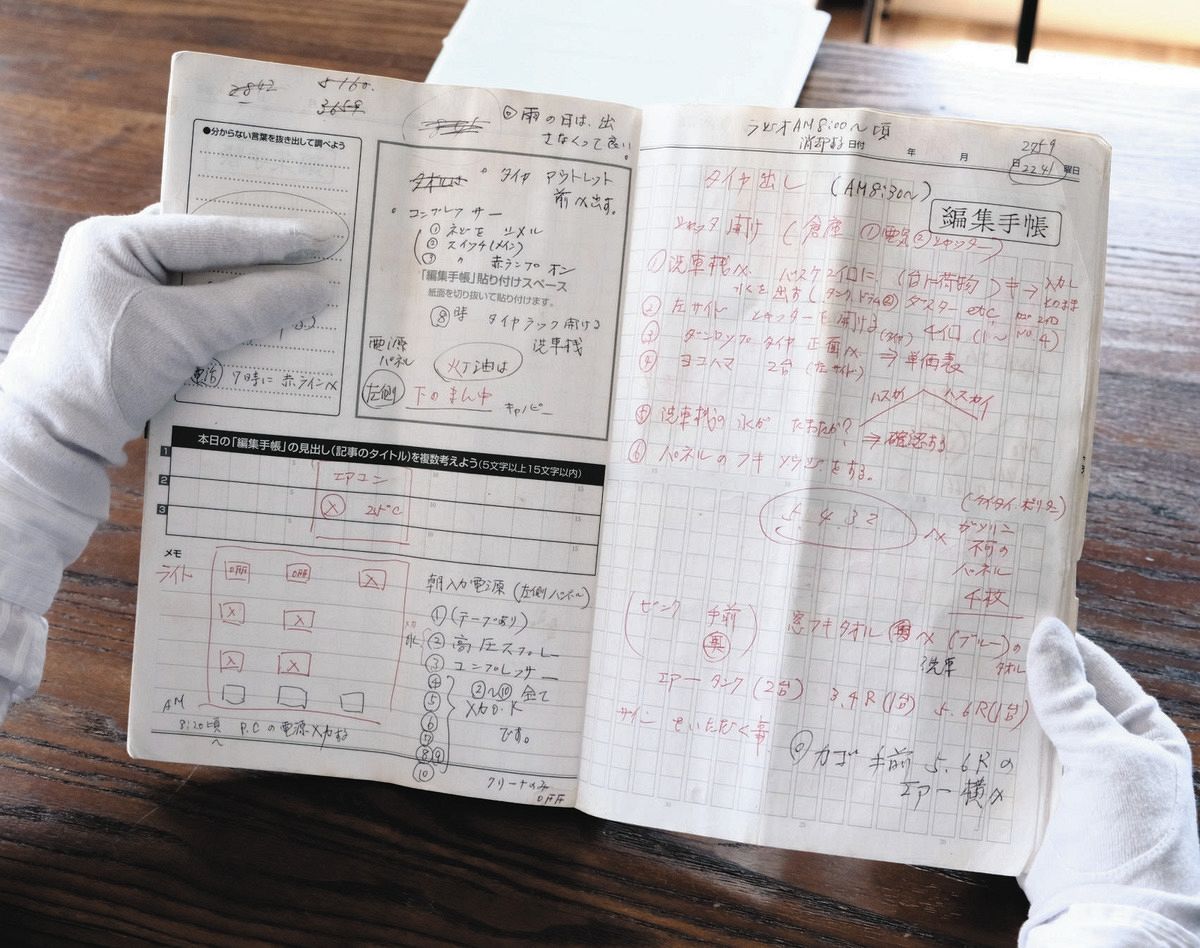 2842
5160.
3659
⑥ 雨の日は、出
さなくって良い。
●分からない言葉を抜き出して調べよう
電話 9時に 赤ライン〆
タイヤ アウトレット
前〆出す。
コンプレッサー
① ネジを シメル
② スイッチ(メイン)
③ 〃 赤ランプ オン
「編集手帳」貼り付けスペース
紙面を切り抜いて貼り付けます。
⑧時 タイヤラック開ける
洗車機
電源
パネル
灯油は
左側 下のまん中 キャノピー
本日の「編集手帳」の見出し(記事のタイトル)を複数考えよう(5文字以上15文字以内)
1
2
3
エアコン
25°C
メモ
ライト
OFF OFF X
X X
X X
AM
8:20頃 P.Cの電源入力する
朝入力電源 (左側パネル)
① (テープあり)
② 高圧スプレー
③ コンプレッサー
④
⑤
⑥
⑦
⑧⑨
⑩
②〜⑩ 全て
入力O.K
です。
クリーナのみ
OFF
ラジオAM8:00〜頃
日付 年 月 日 曜日
2759
2241
タイヤ出し (AM8:30〜)
編集手帳
シャッタ開け (倉庫 ①電気 ②シャッター)
① 洗車機〆. バスケ2個に (台下荷物)
水を出す
② 左サイド シャッターを開ける 4個 (1〜No4)
③ ダンロップタイヤ 正面〆 ⇒ 単価表
④ ヨコハマ 2台 (左サイド)
ハスカイ ハスカイ
⑤ 洗車機の水が たまたか? ⇒ 確認する
⑥ パネルのフキ ソウジ をする。
5.432
(ケイタイ ポリタン)
ガソリン
不可の
パネル
千枚
(ピンク 手前
奥)
窓フキタオル 奥〆 (ブルー)の
洗車 タオル
エアータンク (2台) 3.4R(1台) 5.6R(1台)
サイン をいただく事
カゴ 手前 5.6Rの
エアー横〆